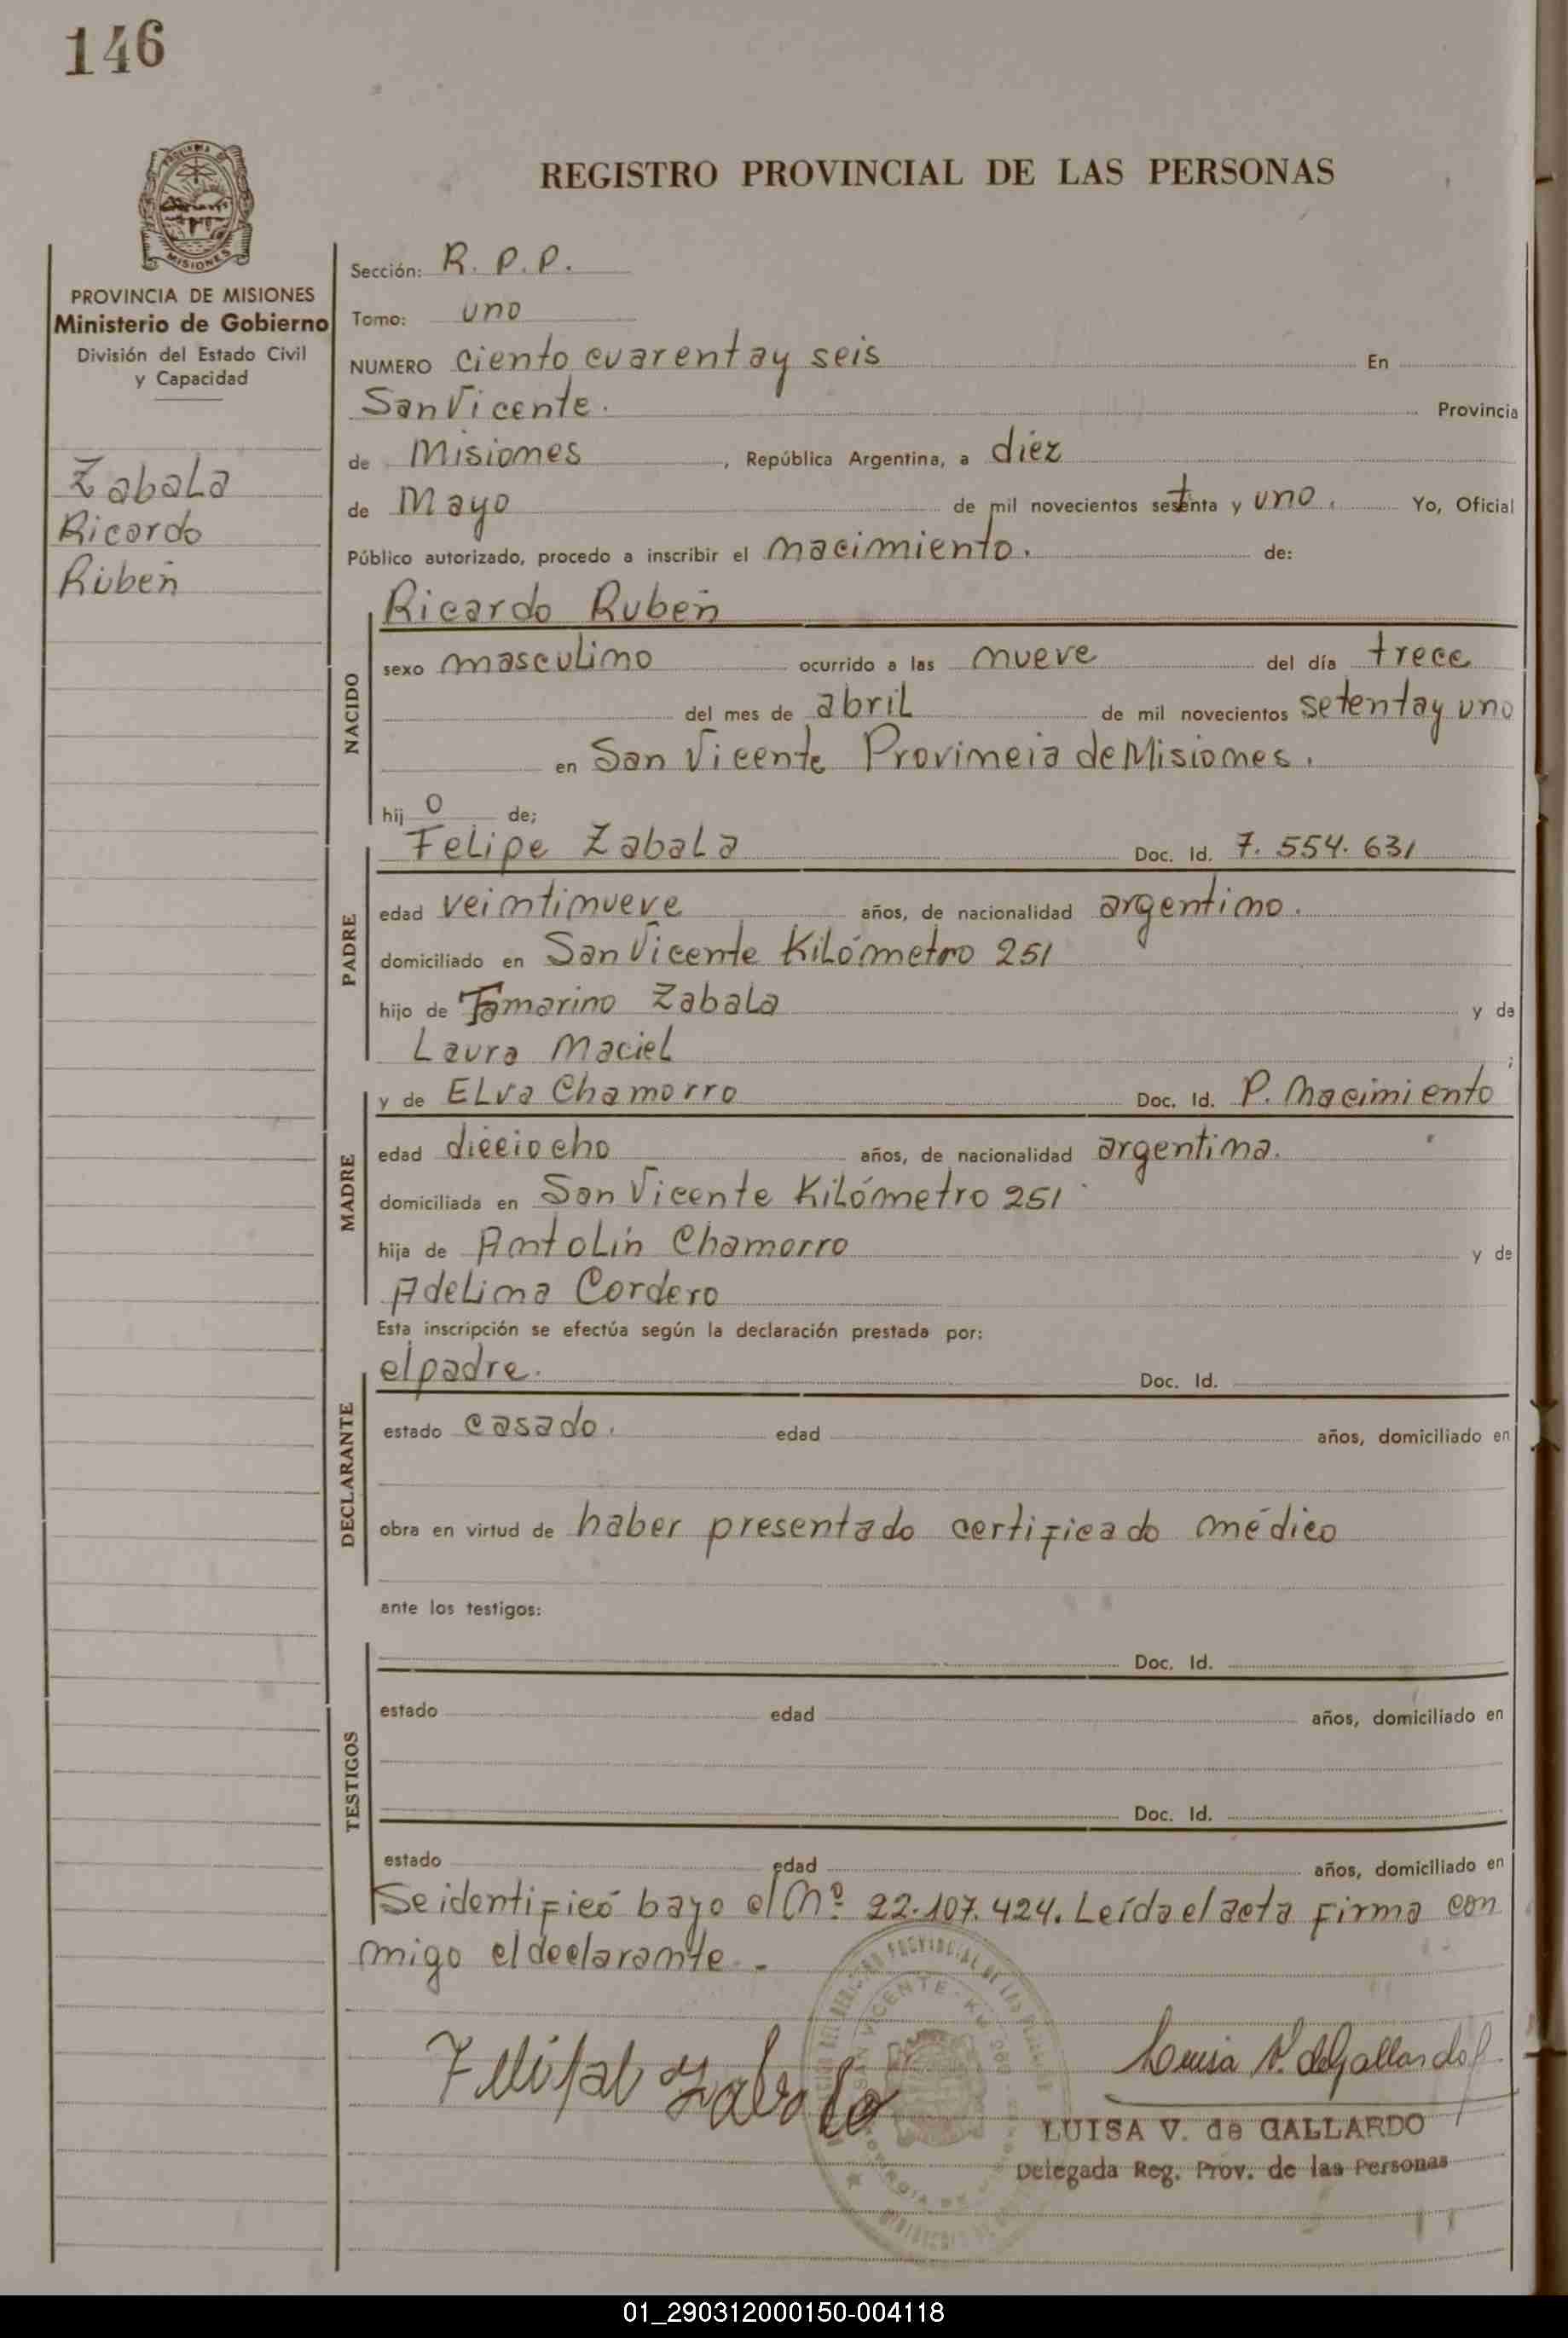 146
REGISTRO PROVINCIAL DE LAS PERSONAS
PROVINCIA DE MISIONES
Ministerio de Gobierno
División del Estado Civil
y Capacidad
Zabala
Ricardo
Rubén
Sección: R. P. P.
Tomo: uno
NUMERO ciento cuarenta y seis En
San Vicente. Provincia
de Misiones, República Argentina, a diez
de Mayo de mil novecientos setenta y uno. Yo, Oficial
Público autorizado, procedo a inscribir el nacimiento. de:
NACIDO
Ricardo Rubén
sexo masculino ocurrido a las nueve del día trece
del mes de abril de mil novecientos setenta y uno
en San Vicente Provincia de Misiones.
hij o de;
PADRE
Felipe Zabala Doc. Id. 7.554.631
edad veintinueve años, de nacionalidad argentino.
domiciliado en San Vicente Kilómetro 251
hijo de Tamarino Zabala y de
Laura Maciel ;
MADRE
y de Elva Chamorro Doc. Id. P. Nacimiento
edad dieciocho años, de nacionalidad argentina.
domiciliada en San Vicente Kilómetro 251
hija de Antolín Chamorro y de
Adelina Cordero
Esta inscripción se efectúa según la declaración prestada por:
DECLARANTE
el padre. Doc. Id.
estado casado. edad años, domiciliado en
obra en virtud de haber presentado certificado médico
ante los testigos:
TESTIGOS
Doc. Id.
estado edad años, domiciliado en
Doc. Id.
estado edad años, domiciliado en
Se identificó bajo el Nº 22.107.424. Leída el acta firma con
migo el declarante.-
Zabala
Luisa V. de Gallardo
LUISA V. de GALLARDO
Delegada Reg. Prov. de las Personas
01_290312000150-004118